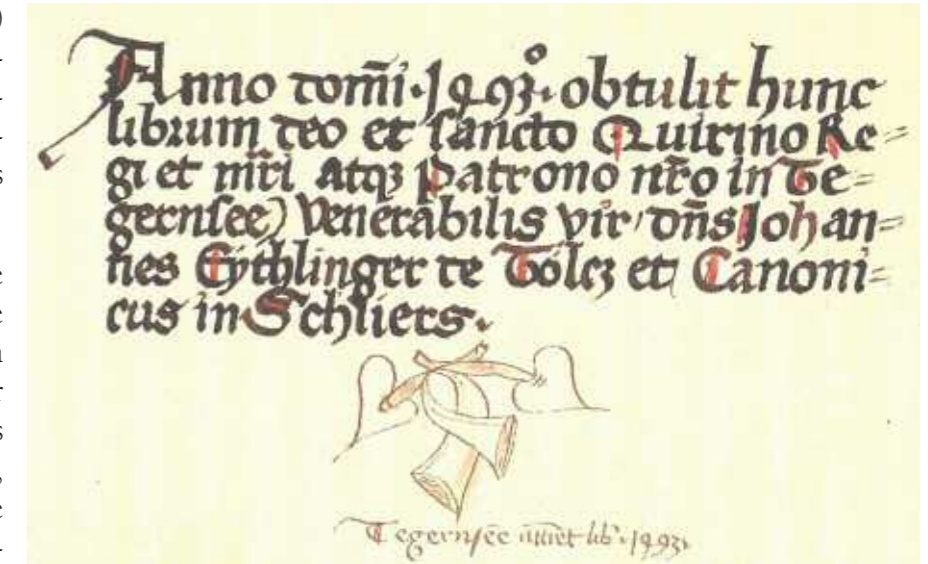 Anno dom̄i · 1493° · obtulit hunc
librum deo et sancto Quirino Re=
gi et mr̄i Atqꝫ patrono nr̄o in Te=
gernsee) Venerabilis vir / dn̄s Johan=
nes Eythlinger de Tölcz et Canoni=
cus in Schliers.
Tegernsee lib · 1493